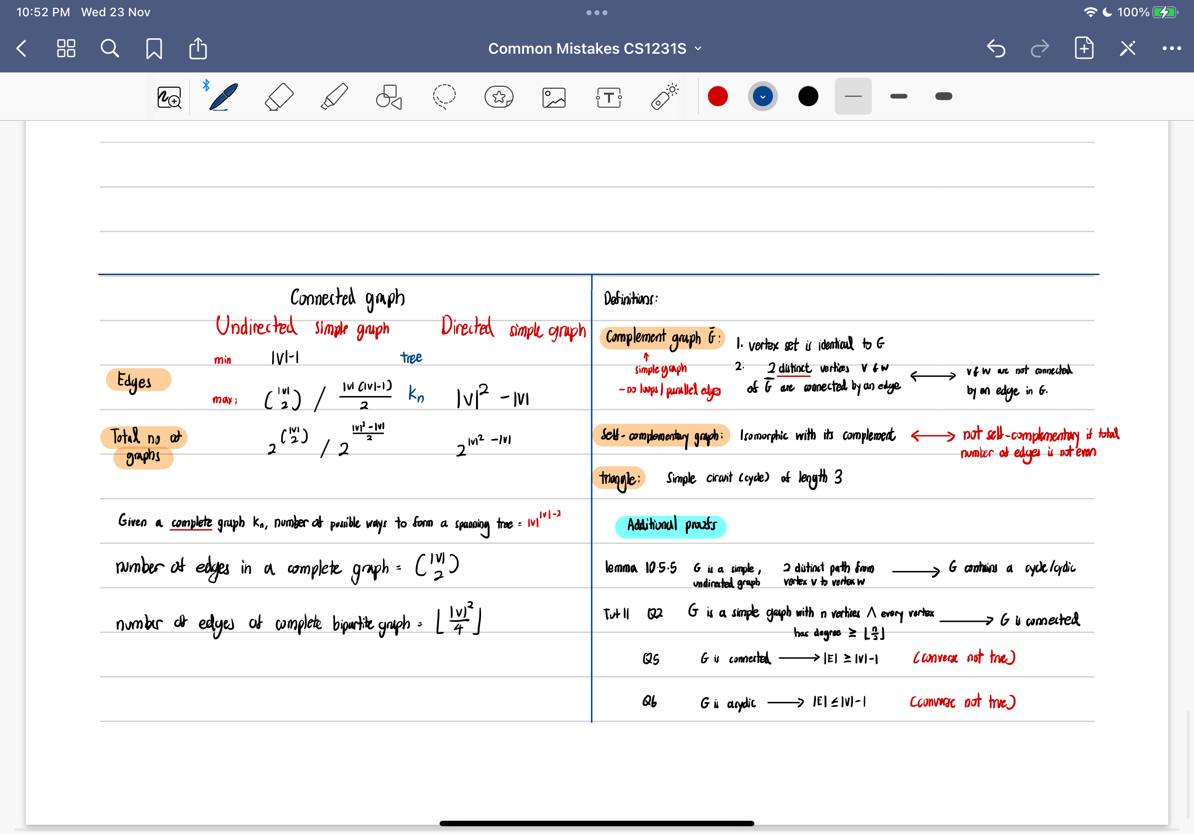 10:52 PM Wed 23 Nov
100%
Common Mistakes CS1231S
Connected graph
Undirected simple graph
Directed simple graph
min |V|-1 tree
Edges
max: (|V| 2) / |V|(|V|-1)/2 Kn |V|² - |V|
Total no of graphs
2^(|V| 2) / 2^((|V|²-|V|)/2) 2^(|V|²-|V|)
Given a complete graph Kn, number of possible ways to form a spanning tree = |V|^(|V|-2)
number of edges in a complete graph = (|V| 2)
number of edges of complete bipartite graph = ⌊|V|²/4⌋
Definitions:
Complement graph G̅:
↑
simple graph
- no loops / parallel edges
1. vertex set is identical to G
2. 2 distinct vertices v & w
of G̅ are connected by an edge
⟷
v & w are not connected
by an edge in G.
Self-complementary graph: Isomorphic with its complement ⟷ not self-complementary if total
number of edges is not even
triangle: Simple circuit (cycle) of length 3
Additional proofs
lemma 10.5.5 G is a simple, undirected graph 2 distinct path from vertex v to vertex w ⟶ G contains a cycle/cyclic
Tut 11 Q2 G is a simple graph with n vertices ∧ every vertex
has degree ≥ ⌊n/2⌋ ⟶ G is connected
Q5 G is connected ⟶ |E| ≥ |V|-1 (converse not true)
Q6 G is acyclic ⟶ |E| ≤ |V|-1 (converse not true)